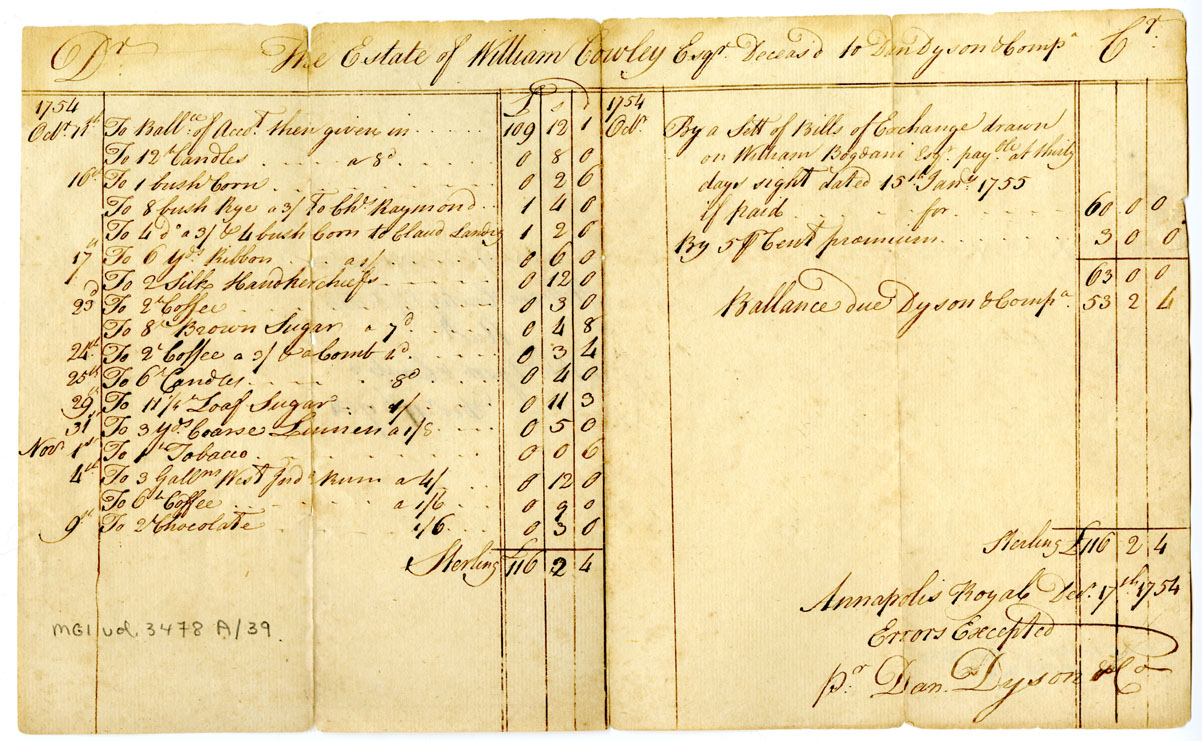 Dr The Estate of William Cowley Esqr Deceasd to Dan Dyson & Compa Cr
£ s d
1754
Octr 11th To Ballce of Accot then given in 109 12 1
To 12 lb Candles a 8d 0 8 0
16th To 1 bush Corn 0 2 6
To 8 bush Rye a 3/ To Chs Raymond 1 4 0
To 4 do a 3/ & 4 bush Corn to Claud Landry 1 2 0
17th To 6 Yds Ribbon a 1/ 0 6 0
To 2 Silk Handkerchiefs 0 12 0
23d To 2 lb Coffee 0 3 0
To 8 lb Brown Sugar a 7d 0 4 8
24th To 2 lb Coffee a 3/ & a Comb 4d 0 3 4
25th To 6 lb Candles 8d 0 4 0
29th To 11 1/4 lb Loaf Sugar 1/ 0 11 3
31st To 3 Yds Coarse Linnen a 1/8 0 5 0
Novr 1st To 1 lb Tobacco 0 0 6
4th To 3 Gallns West Inda Rum a 4/ 0 12 0
To 6 lb Coffee a 1/6 0 9 0
9th To 2 lb Chocolate 1/6 0 3 0
Sterling £ 116 2 4
1754
Octr By a Sett of Bills of Exchange drawn
on William Bogdani Esqr payble at thirty
days sight dated 15th Jany 1755
if paid for 60 0 0
By 5 p Cent præmium 3 0 0
63 0 0
Ballance due Dyson & Compa 53 2 4
Sterling £ 116 2 4
Annapolis Royal Der. 17th 1754
Errors Excepted
pr Dan. Dyson & Co
MG1 vol. 3478 A/39